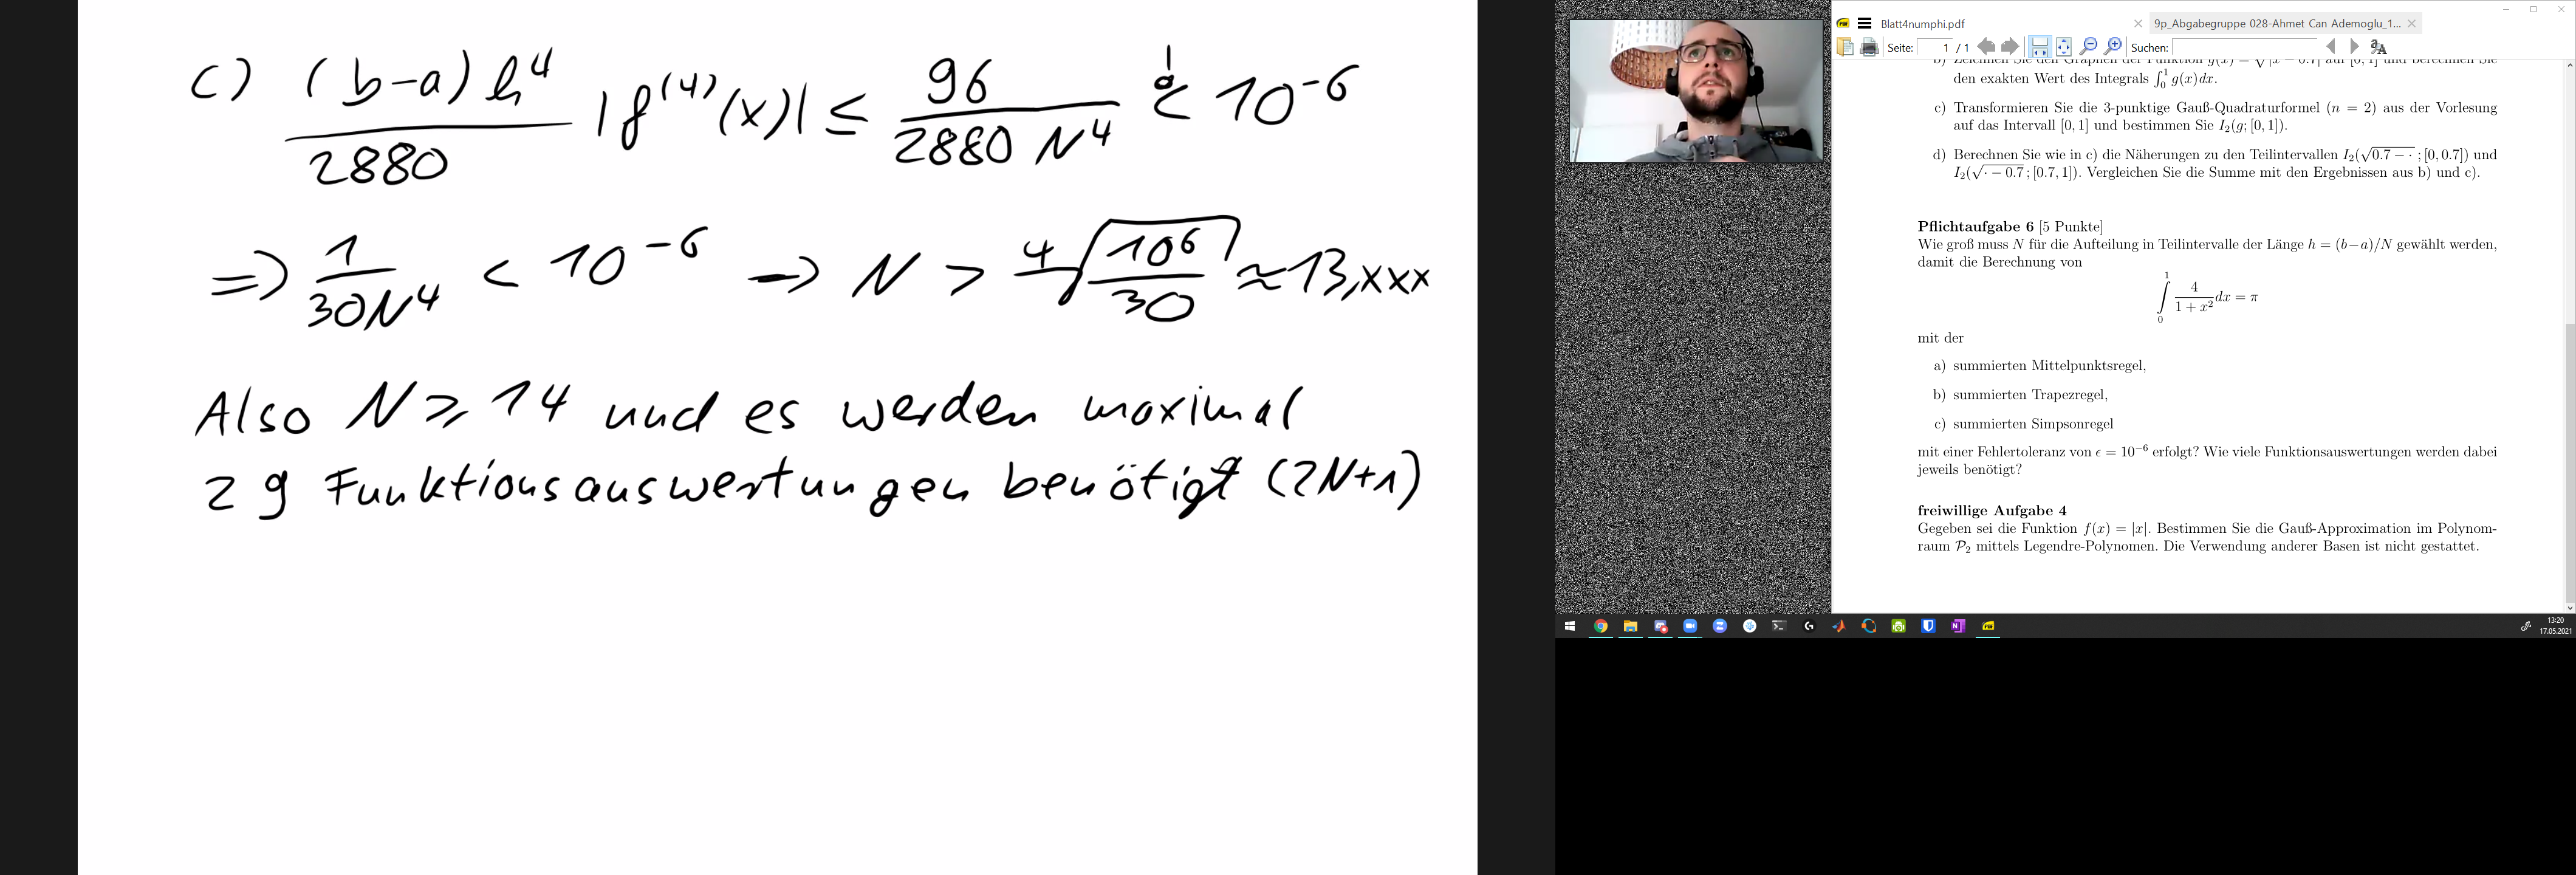 c) (b-a) h⁴ / 2880 |f⁽⁴⁾(x)| ≤ 96 / 2880 N⁴ <! 10⁻⁶
=> 1 / 30N⁴ < 10⁻⁶ → N > ⁴√(10⁶ / 30) ≈ 13,xxx
Also N ≥ 14 und es werden maximal
29 Funktionsauswertungen benötigt (2N+1)
Blatt4numphi.pdf
9p_Abgabegruppe 028-Ahmet Can Ademoglu_1...
Seite: 1 / 1 Suchen:
b) Zeichnen Sie den Graphen der Funktion g(x) = √|x − 0.7| auf [0, 1] und berechnen Sie
den exakten Wert des Integrals ∫₀¹ g(x)dx.
c) Transformieren Sie die 3-punktige Gauß-Quadraturformel (n = 2) aus der Vorlesung
auf das Intervall [0, 1] und bestimmen Sie I₂(g; [0, 1]).
d) Berechnen Sie wie in c) die Näherungen zu den Teilintervallen I₂(√0.7 − · ; [0, 0.7]) und
I₂(√· − 0.7 ; [0.7, 1]). Vergleichen Sie die Summe mit den Ergebnissen aus b) und c).
Pflichtaufgabe 6 [5 Punkte]
Wie groß muss N für die Aufteilung in Teilintervalle der Länge h = (b−a)/N gewählt werden,
damit die Berechnung von
∫₀¹ 4 / (1 + x²) dx = π
mit der
a) summierten Mittelpunktsregel,
b) summierten Trapezregel,
c) summierten Simpsonregel
mit einer Fehlertoleranz von ϵ = 10⁻⁶ erfolgt? Wie viele Funktionsauswertungen werden dabei
jeweils benötigt?
freiwillige Aufgabe 4
Gegeben sei die Funktion f(x) = |x|. Bestimmen Sie die Gauß-Approximation im Polynom-
raum 𝒫₂ mittels Legendre-Polynomen. Die Verwendung anderer Basen ist nicht gestattet.
13:20
17.05.2021